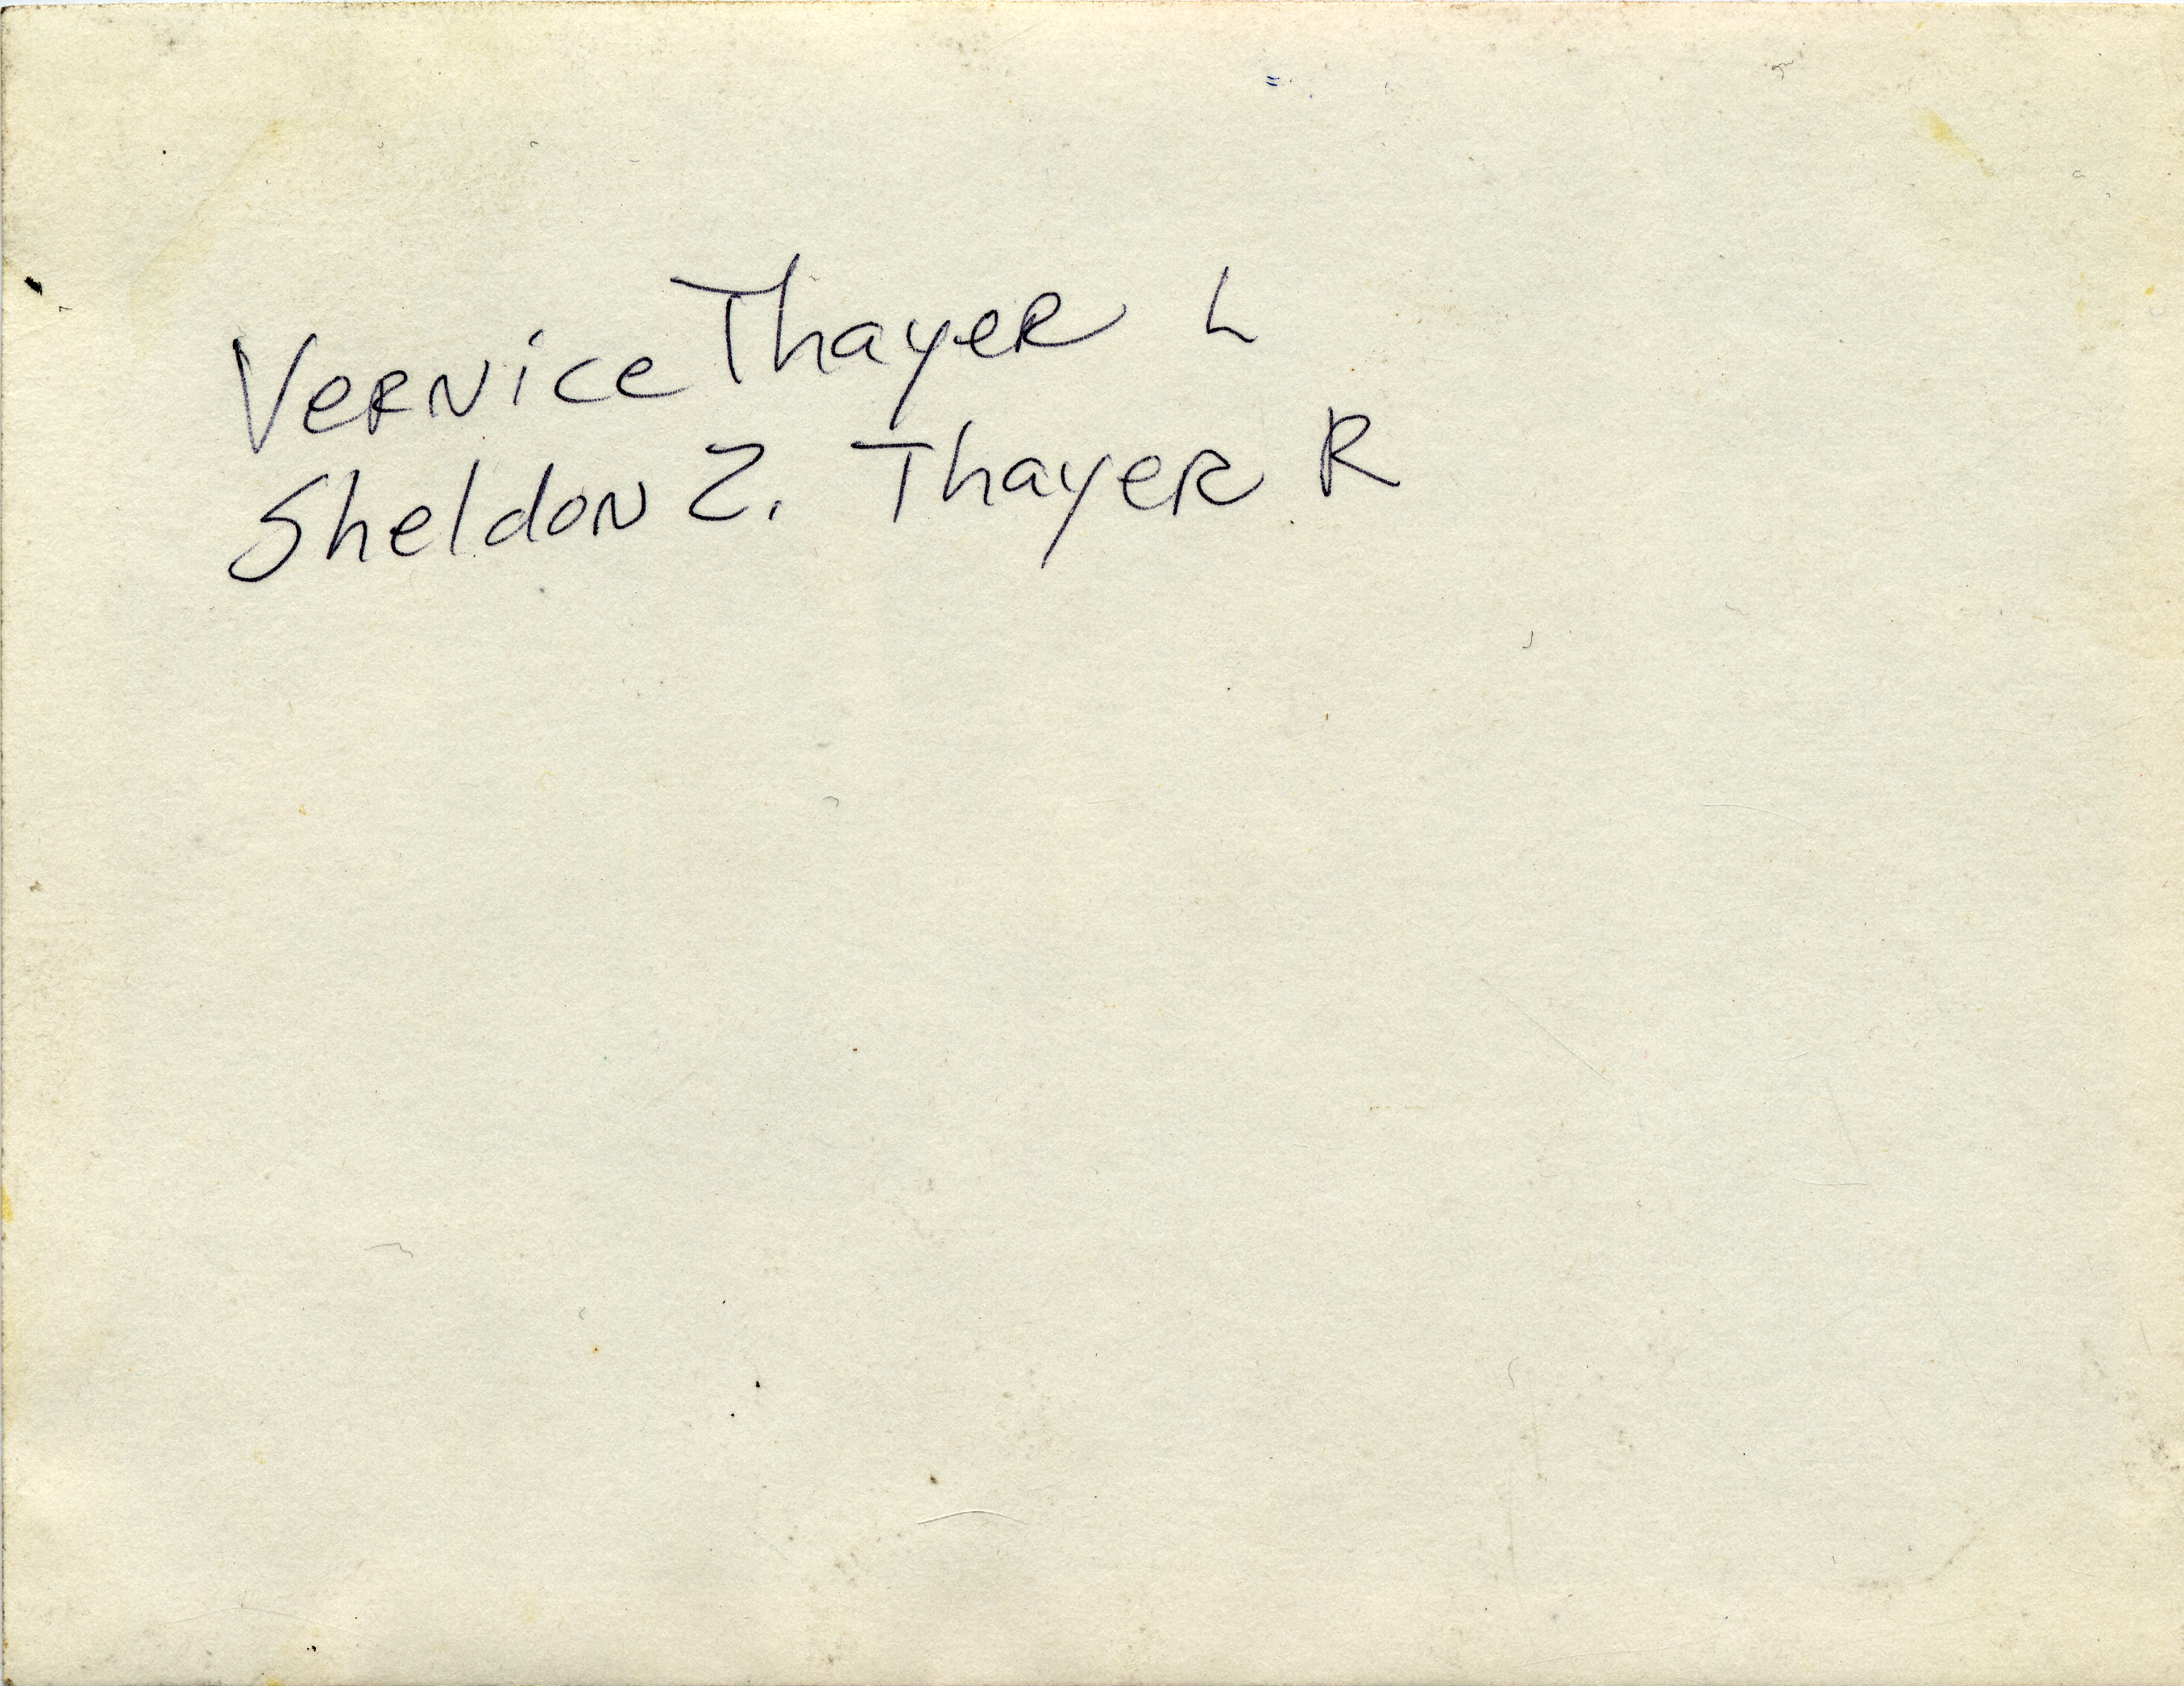 Vernice Thayer L
Sheldon Z. Thayer R